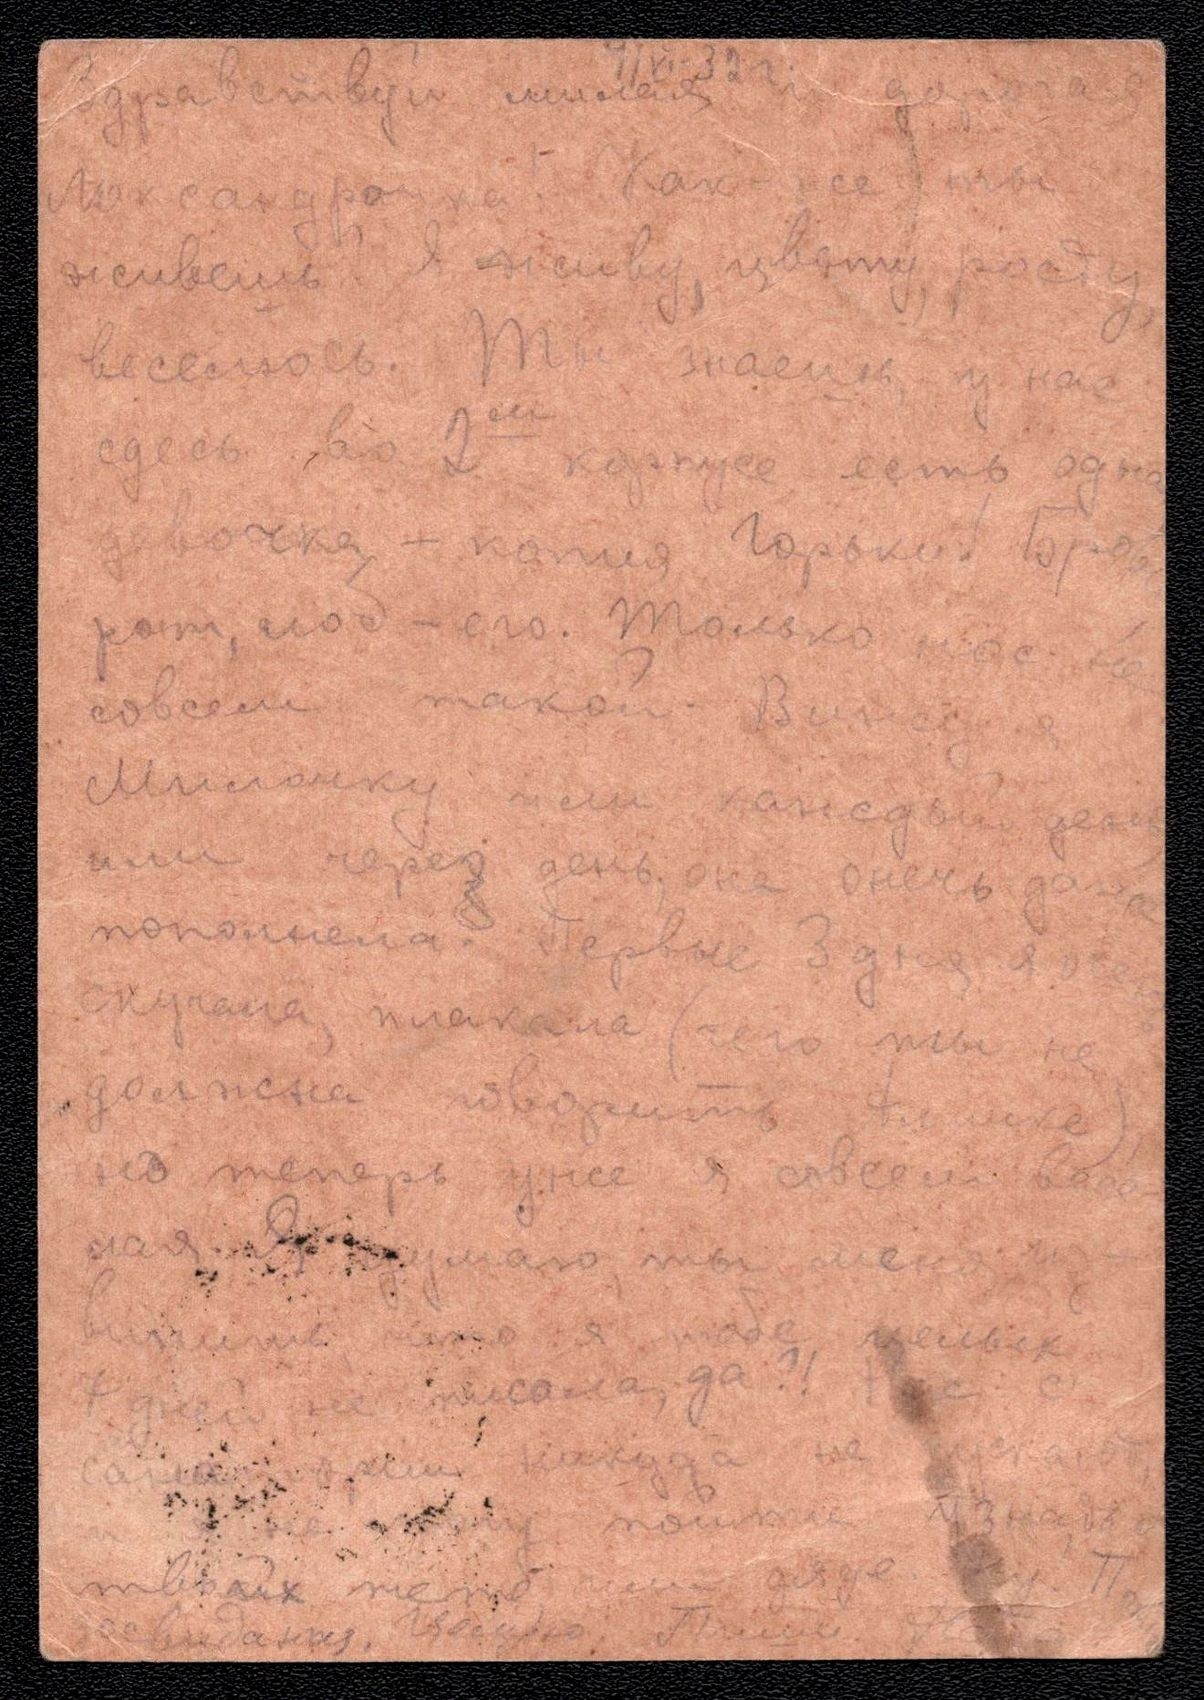 7/VI-32 г.
Здравствуй милая и дорогая
Люксандрочка! Как-же ты
живешь? Я живу, цвету, росту,
веселюсь. Ты знаешь, у нас
сдесь во 2м корпусе есть одна
девочка - копия Горький!
рот, лоб - его. Только нос не
совсем такой. Вижу я
Милочку или каждый день
или через день, она очень даже
пополнела. Первые 3 дня я очень
скучала, плакала (чего ты не
должна говорить
но теперь уже я совсем весе-
лая. Я думаю, ты меня
что я тебе целых
7 дней не писала, да?! Нас с
никуда не пускают,
и я не могу пойти
твоих тёте или дяде. Ну.
досвидания. Целую. Пиши.